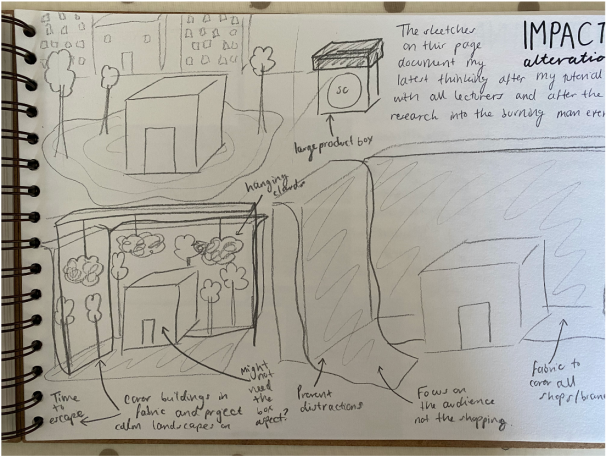 The sketches
on this page
document my
latest thinking after my tutorial
with all lecturers and after the
research into the burning man even
IMPACT
alteratio
SC
large product box
hanging
clouds
Time
to
escape
cover buildings in
fabric and project
calm landscapes on
Might
not
need
the
box
aspect?
Prevent
distractions
Focus on
the audience
not the shopping.
Fabric to
cover all
shops/bran